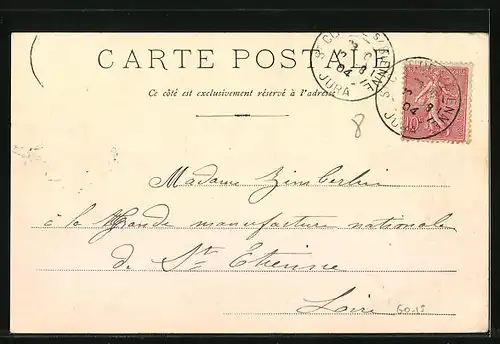 CARTE POSTALE
Ce côté est exclusivement réservé à l'adresse
JURA
04
8
10
04
JURA
8
Madame Zimberlin
à la Grande manufacture nationale
de St Etienne
Loire
60-15